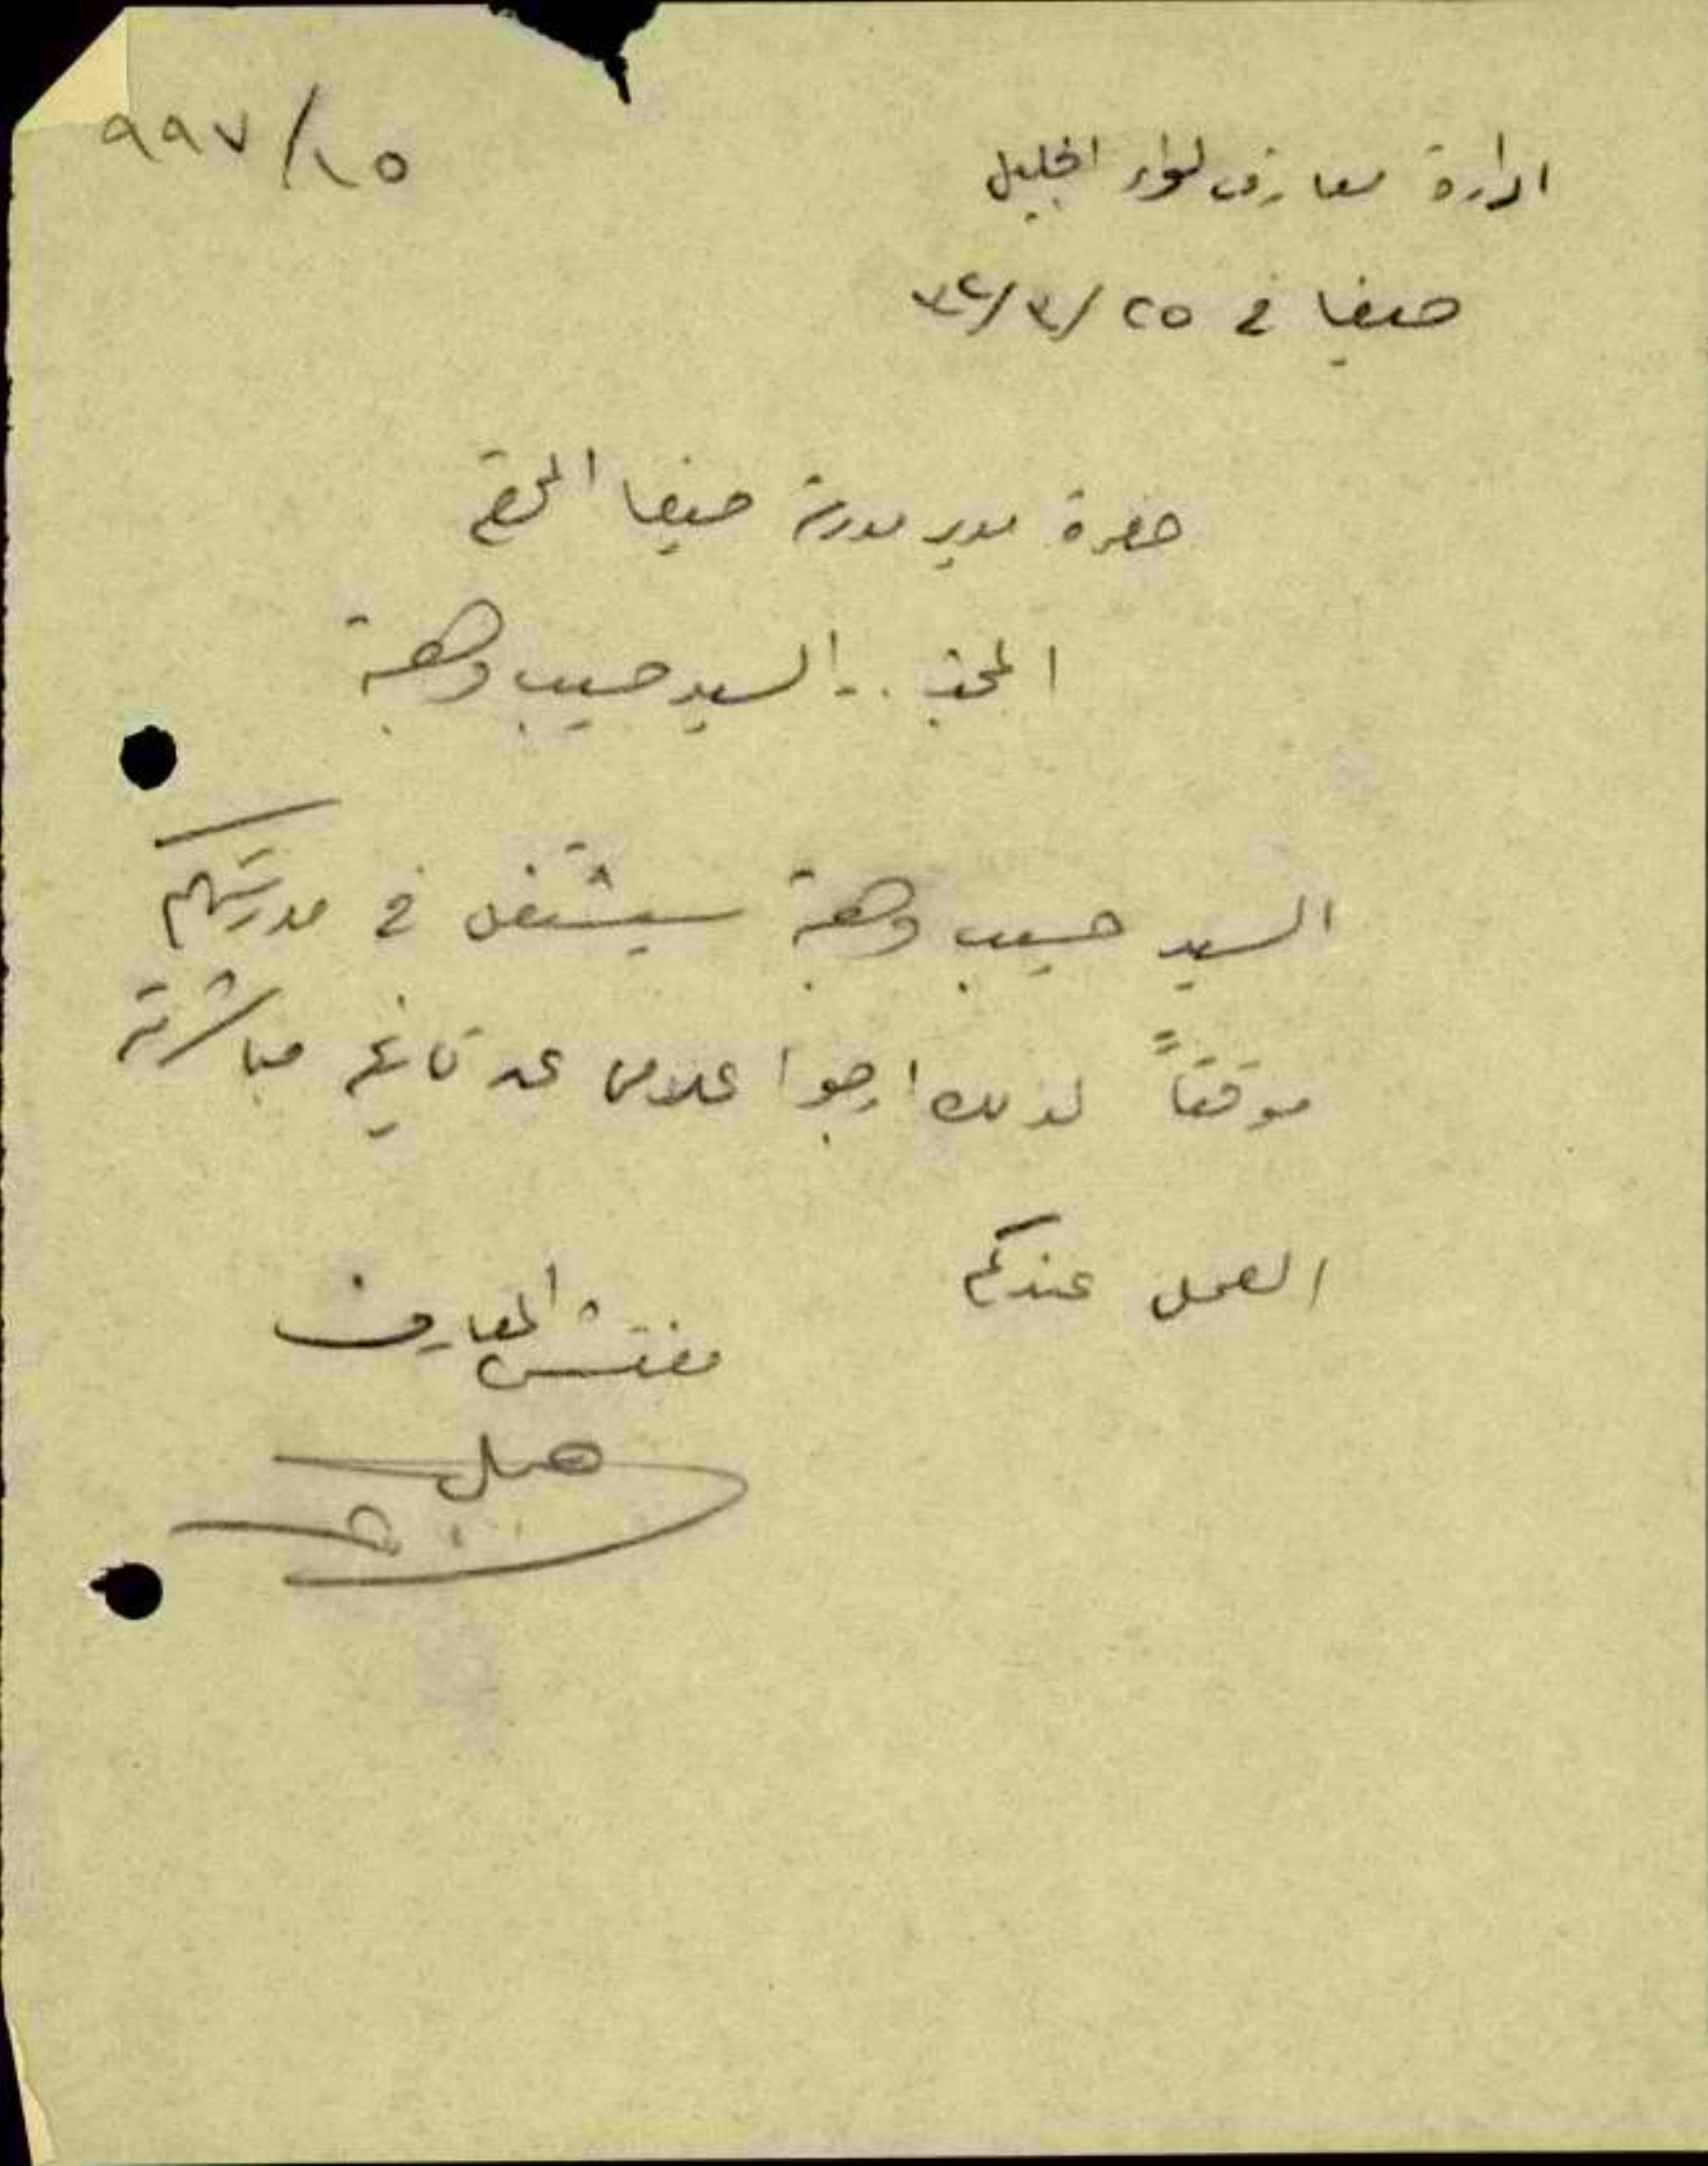 ٩٩٧/١٥
ادارة معارف لواء الجليل
حيفا في ٢٥/٣/٣٢
حضرة مدير مدرسة حيفا المحترم
السيد حسيب وهبة
السيد حسيب وهبة سيشتغل في مدرستكم
موقتاً لذلك ارجو اعلامي عن تاريخ مباشرته
العمل عندكم
مفتش المعارف